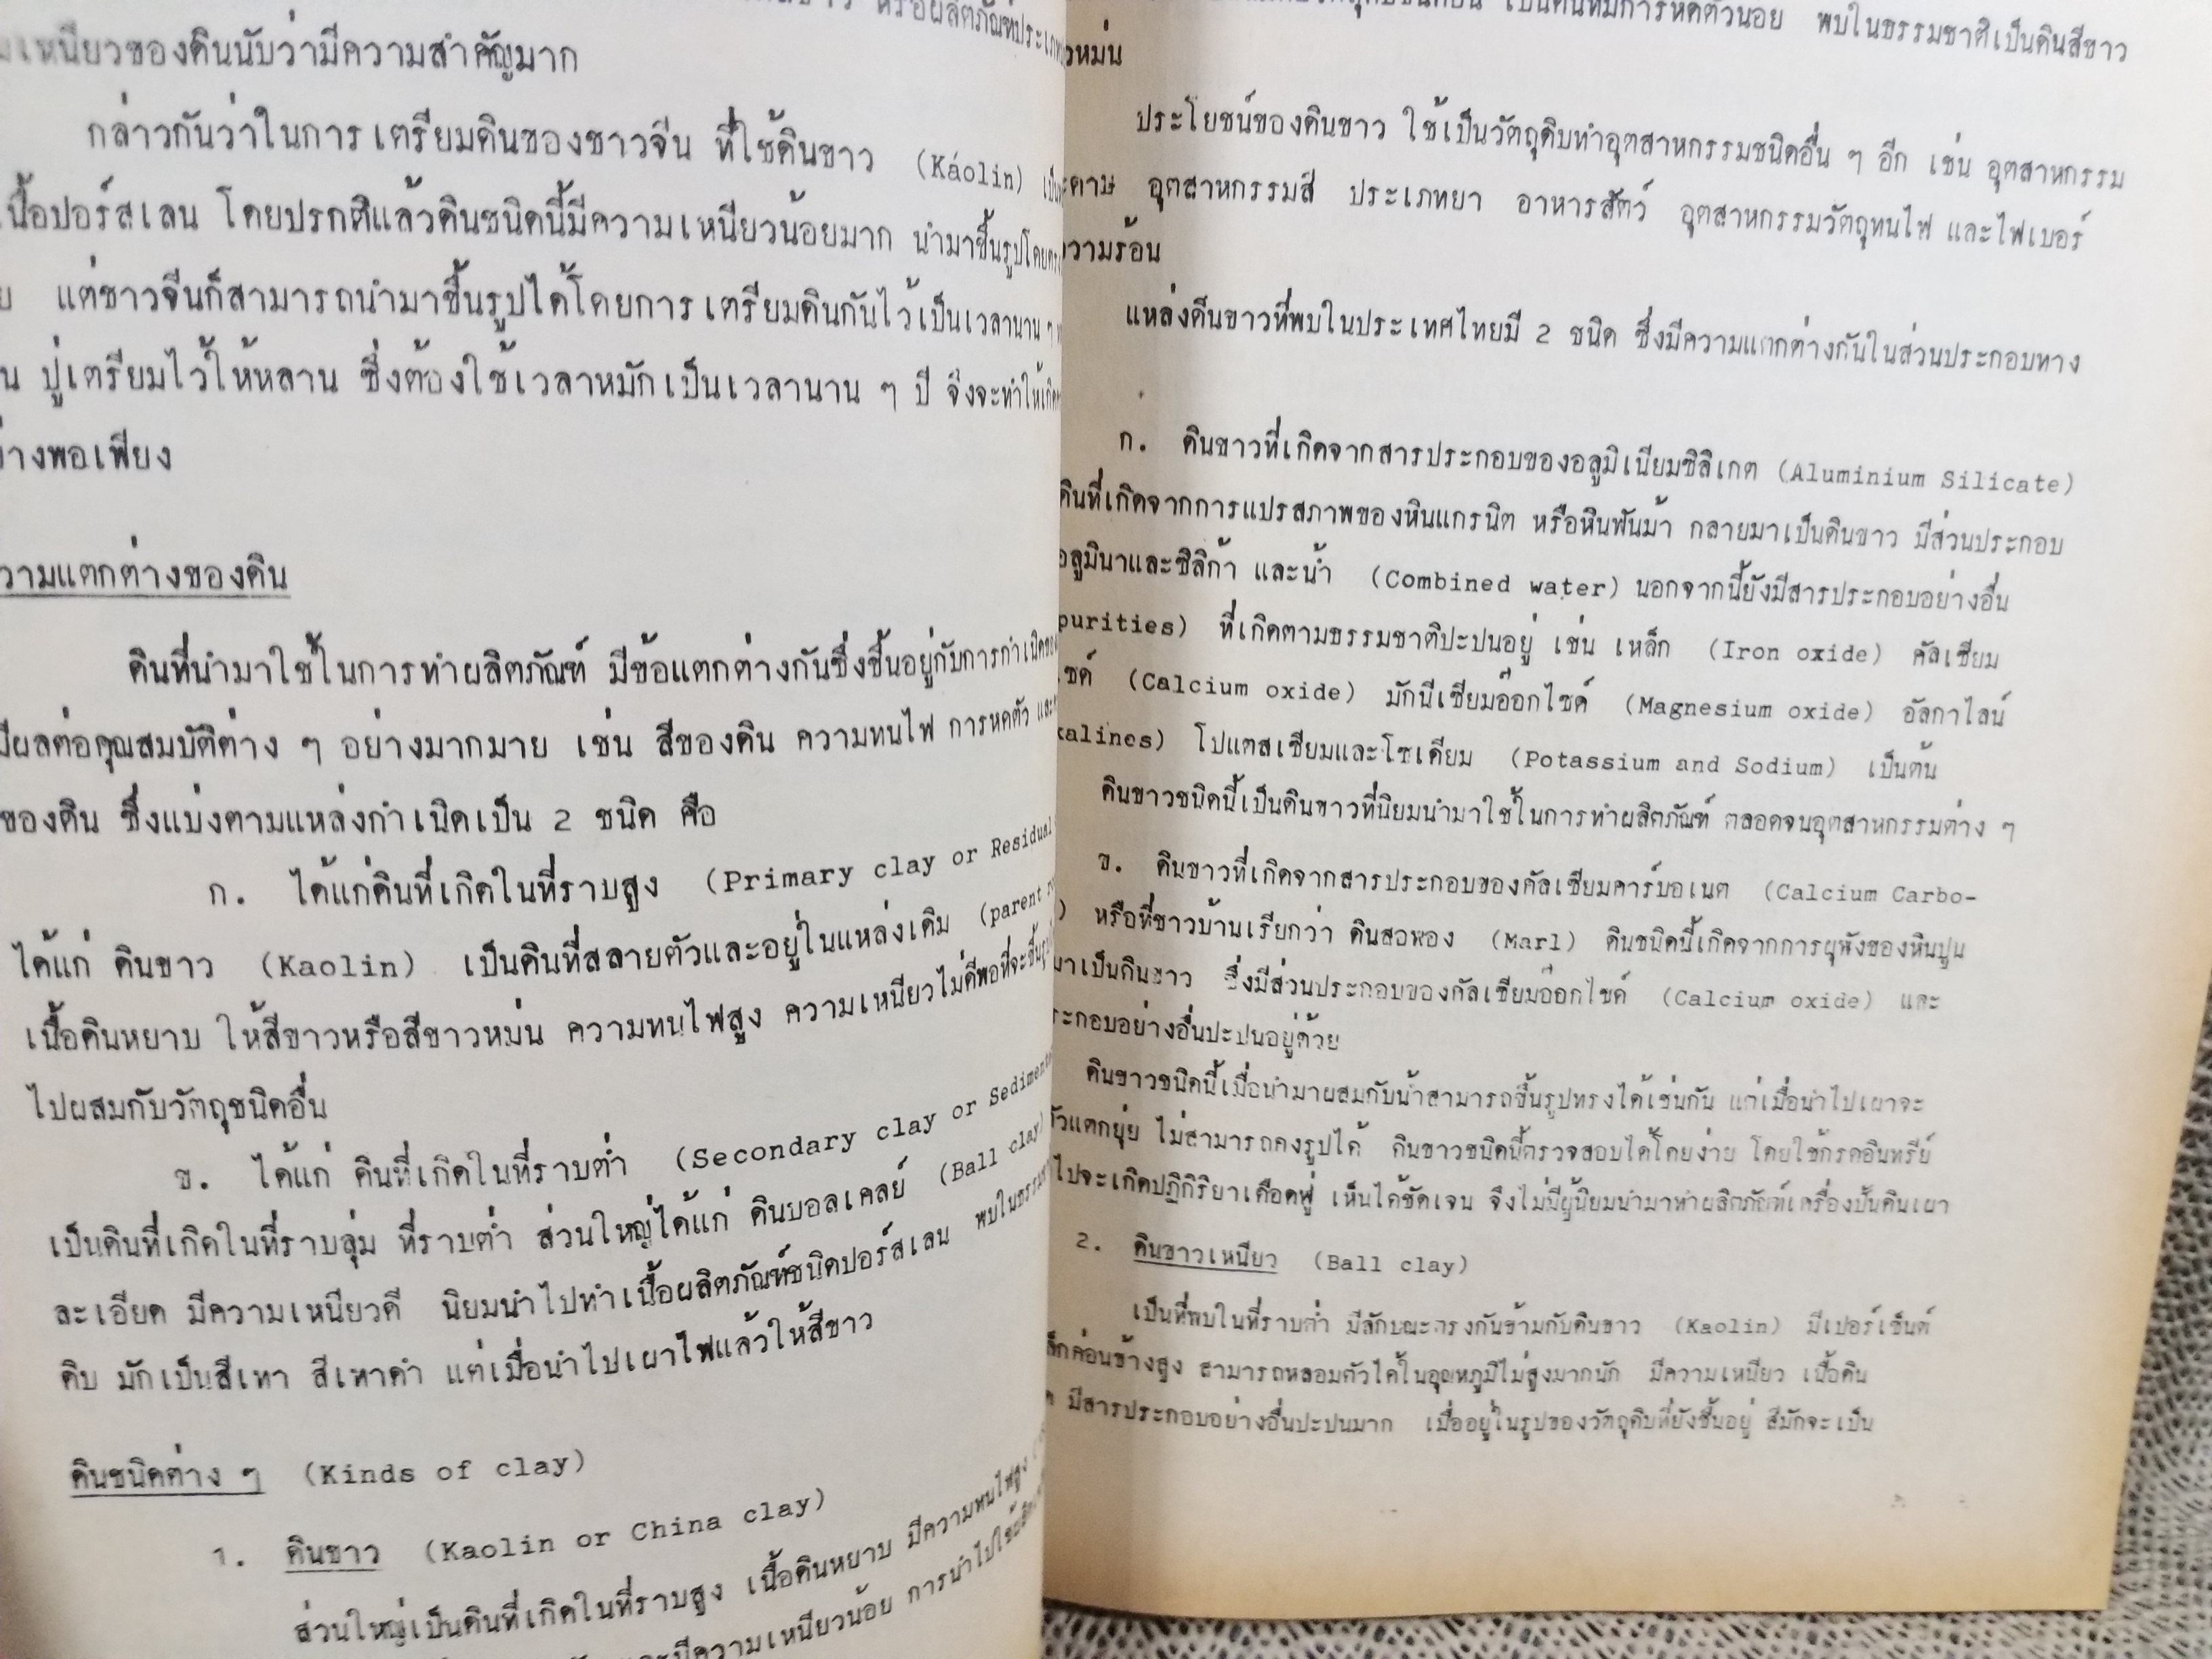 หรือผลิตภัณฑ์ประเภท
เหนียวของดินนับว่ามีความสำคัญมาก
กล่าวกันว่าในการเตรียมดินของชาวจีน ที่ใช้ดินขาว (Káolin) เป็น
เนื้อปอร์สเลน โดยปรกติแล้วดินชนิดนี้มีความเหนียวน้อยมาก นำมาขึ้นรูปโดยตรง
แต่ชาวจีนก็สามารถนำมาขึ้นรูปได้โดยการเตรียมดินกันไว้เป็นเวลานาน ๆ
ปู่เตรียมไว้ให้หลาน ซึ่งต้องใช้เวลาหมักเป็นเวลานาน ๆ ปี จึงจะทำให้เกิด
างพอเพียง
วามแตกต่างของดิน
ดินที่นำมาใช้ในการทำผลิตภัณฑ์ มีข้อแตกต่างกันซึ่งขึ้นอยู่กับการกำเนิดของ
มีผลต่อคุณสมบัติต่าง ๆ อย่างมากมาย เช่น สีของดิน ความทนไฟ การหดตัว และ
ของดิน ซึ่งแบ่งตามแหล่งกำเนิดเป็น 2 ชนิด คือ
ก. ได้แก่ดินที่เกิดในที่ราบสูง (Primary clay or Residual
ได้แก่ ดินขาว (Kaolin) เป็นดินที่สลายตัวและอยู่ในแหล่งเดิม (parent
เนื้อดินหยาบ ให้สีขาวหรือสีขาวหม่น ความทนไฟสูง ความเหนียวไม่ดีพอที่จะขึ้นรูป
ไปผสมกับวัตถุชนิดอื่น
ข. ได้แก่ ดินที่เกิดในที่ราบต่ำ (Secondary clay or Sediment
เป็นดินที่เกิดในที่ราบลุ่ม ที่ราบต่ำ ส่วนใหญ่ได้แก่ ดินบอลเคลย์ (Ball clay)
ละเอียด มีความเหนียวดี นิยมนำไปทำเนื้อผลิตภัณฑ์ชนิดปอร์สเลน พบในธรรมชา
ดิบ มักเป็นสีเทา สีเทาดำ แต่เมื่อนำไปเผาไฟแล้วให้สีขาว
ดินชนิดต่าง ๆ (Kinds of clay)
1. ดินขาว (Kaolin or China clay)
ส่วนใหญ่เป็นดินที่เกิดในที่ราบสูง เนื้อดินหยาบ มีความทนไฟสูง
และมีความเหนียวน้อย การนำไปใช้
เป็นดินที่มีการหดตัวน้อย พบในธรรมชาติเป็นดินสีขาว
วหม่น
ประโยชน์ของดินขาว ใช้เป็นวัตถุดิบทำอุตสาหกรรมชนิดอื่น ๆ อีก เช่น อุตสาหกรรม
ะดาษ อุตสาหกรรมสี ประเภทยา อาหารสัตว์ อุตสาหกรรมวัตถุทนไฟ และไฟเบอร์
วามร้อน
แหล่งดินขาวที่พบในประเทศไทยมี 2 ชนิด ซึ่งมีความแตกต่างกันในส่วนประกอบทาง
ก. ดินขาวที่เกิดจากสารประกอบของอลูมิเนียมซิลิเกต (Aluminium Silicate)
ดินที่เกิดจากการแปรสภาพของหินแกรนิต หรือหินฟันม้า กลายมาเป็นดินขาว มีส่วนประกอบ
อลูมินาและซิลิก้า และน้ำ (Combined water) นอกจากนี้ยังมีสารประกอบอย่างอื่น
purities) ที่เกิดตามธรรมชาติปะปนอยู่ เช่น เหล็ก (Iron oxide) คัลเซียม
ไซด์ (Calcium oxide) มักนีเซียมอ๊อกไซด์ (Magnesium oxide) อัลกาไลน์
kalines) โปแตสเซียมและโซเดียม (Potassium and Sodium) เป็นต้น
ดินขาวชนิดนี้เป็นดินขาวที่นิยมนำมาใช้ในการทำผลิตภัณฑ์ ตลอดจนอุตสาหกรรมต่าง ๆ
ข. ดินขาวที่เกิดจากสารประกอบของคัลเซียมคาร์บอเนต (Calcium Carbo-
) หรือที่ชาวบ้านเรียกว่า ดินสอพอง (Marl) ดินชนิดนี้เกิดจากการผุพังของหินปูน
มาเป็นดินขาว ซึ่งมีส่วนประกอบของคัลเซียมอ๊อกไซด์ (Calcium oxide) และ
ระกอบอย่างอื่นปะปนอยู่ด้วย
ดินขาวชนิดนี้เมื่อนำมาผสมกับน้ำสามารถขึ้นรูปทรงได้เช่นกัน แต่เมื่อนำไปเผาจะ
ตัวแตกยุ่ย ไม่สามารถคงรูปได้ ดินขาวชนิดนี้ตรวจสอบได้โดยง่าย โดยใช้กรดอินทรีย์
ไปจะเกิดปฏิกิริยาเดือดฟู่ เห็นได้ชัดเจน จึงไม่มีผู้นิยมนำมาทำผลิตภัณฑ์เครื่องปั้นดินเผา
2. ดินขาวเหนียว (Ball clay)
เป็นที่พบในที่ราบต่ำ มีลักษณะตรงกันข้ามกับดินขาว (Kaolin) มีเปอร์เซ็นต์
ล็กค่อนข้างสูง สามารถหลอมตัวได้ในอุณหภูมิไม่สูงมากนัก มีความเหนียว เนื้อดิน
มีสารประกอบอย่างอื่นปะปนมาก เมื่ออยู่ในรูปของวัตถุดิบที่ยังชื้นอยู่ สีมักจะเป็น